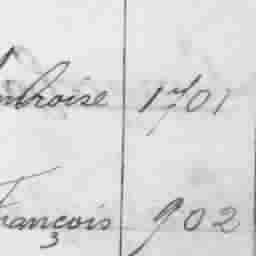 Ambroise 1701
François 902